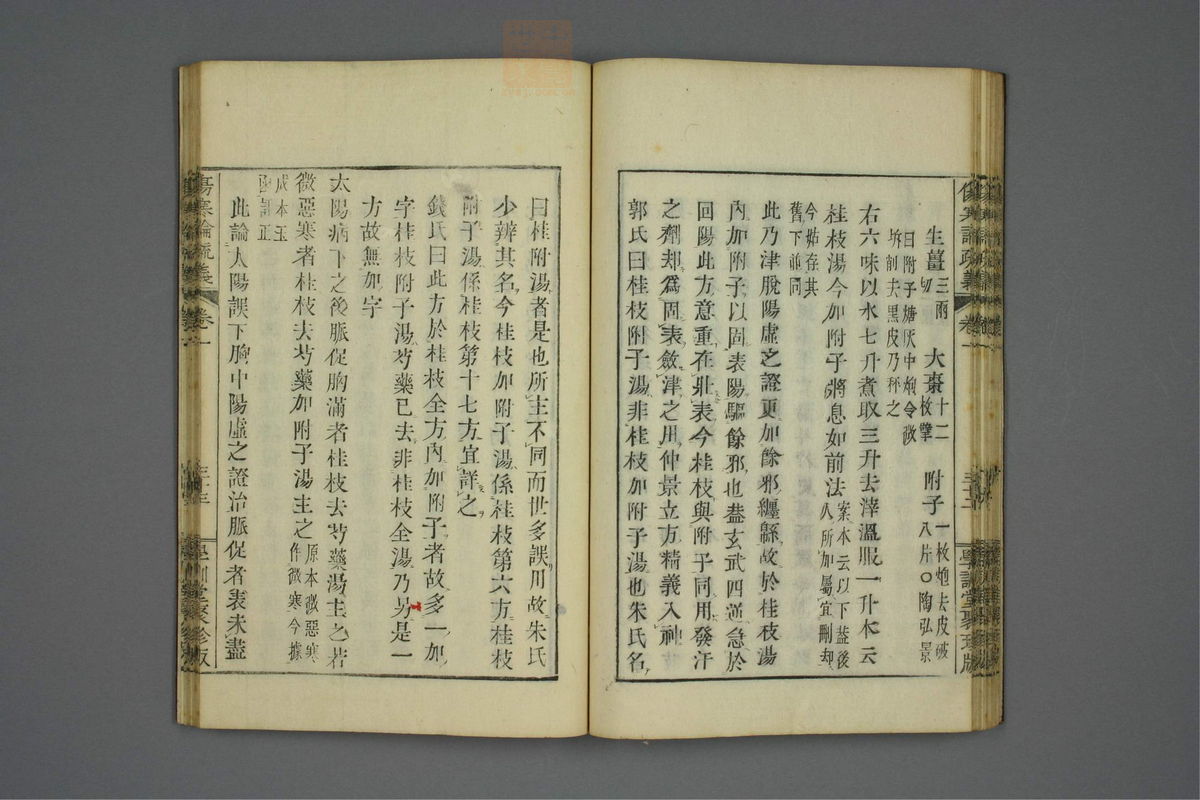 生薑三兩切　大棗十二枚擘　附子一枚炮去皮破八片〇陶弘景
曰附子煻灰中炮令微
坼削去黑皮乃秤之
右六味以水七升煮取三升去滓溫服一升本云
桂枝湯今加附子將息如前法案本云以下蓋後人所加屬宜刪却
今姑存其
舊下並同
此乃津脫陽虛之證更加餘邪纏緜故於桂枝湯
內加附子以固表陽驅餘邪也蓋玄武四逆急於
回陽此方意重在壯表今桂枝與附子同用發汗
之劑却爲固表斂津之用仲景立方精義入神
郭氏曰桂枝附子湯非桂枝加附子湯也朱氏名
曰桂附湯者是也所主不同而世多誤用故朱氏
少辨其名今桂枝加附子湯係桂枝第六方桂枝
附子湯係桂枝第十七方宜詳之
錢氏曰此方於桂枝全方內加附子者故多一加
字桂枝附子湯芍藥已去非桂枝全湯乃另是一
方故無加字
太陽病下之後脈促胸滿者桂枝去芍藥湯主之若
微惡寒者桂枝去芍藥加附子湯主之原本微惡寒作微寒今據
成本玉
函訂正
此論太陽誤下胸中陽虛之證治脈促者表未盡
傷寒論疏義　卷一
學訓堂聚珍版